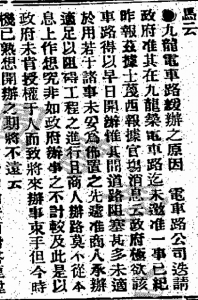 馬云
●九龍電車路緩辦之原因　電車路公司迭請
政府准其在九龍築電車路迄未邀准一事已紀
昨報茲據士蔑西報據官塲消息云政府極欲該
車路得以早日開辦惟其間道路阻塞甚多未適
於用若于諸事未妥爲佈置之先遽准商人承辦
適足以阻碍工程之進行且商人辦路莫不從本
息上作想究非如政府辦事之不計較及此是以
政府未肯授權于人而致將來辦事束手但今時
機已熟想開辦之期將不遠云